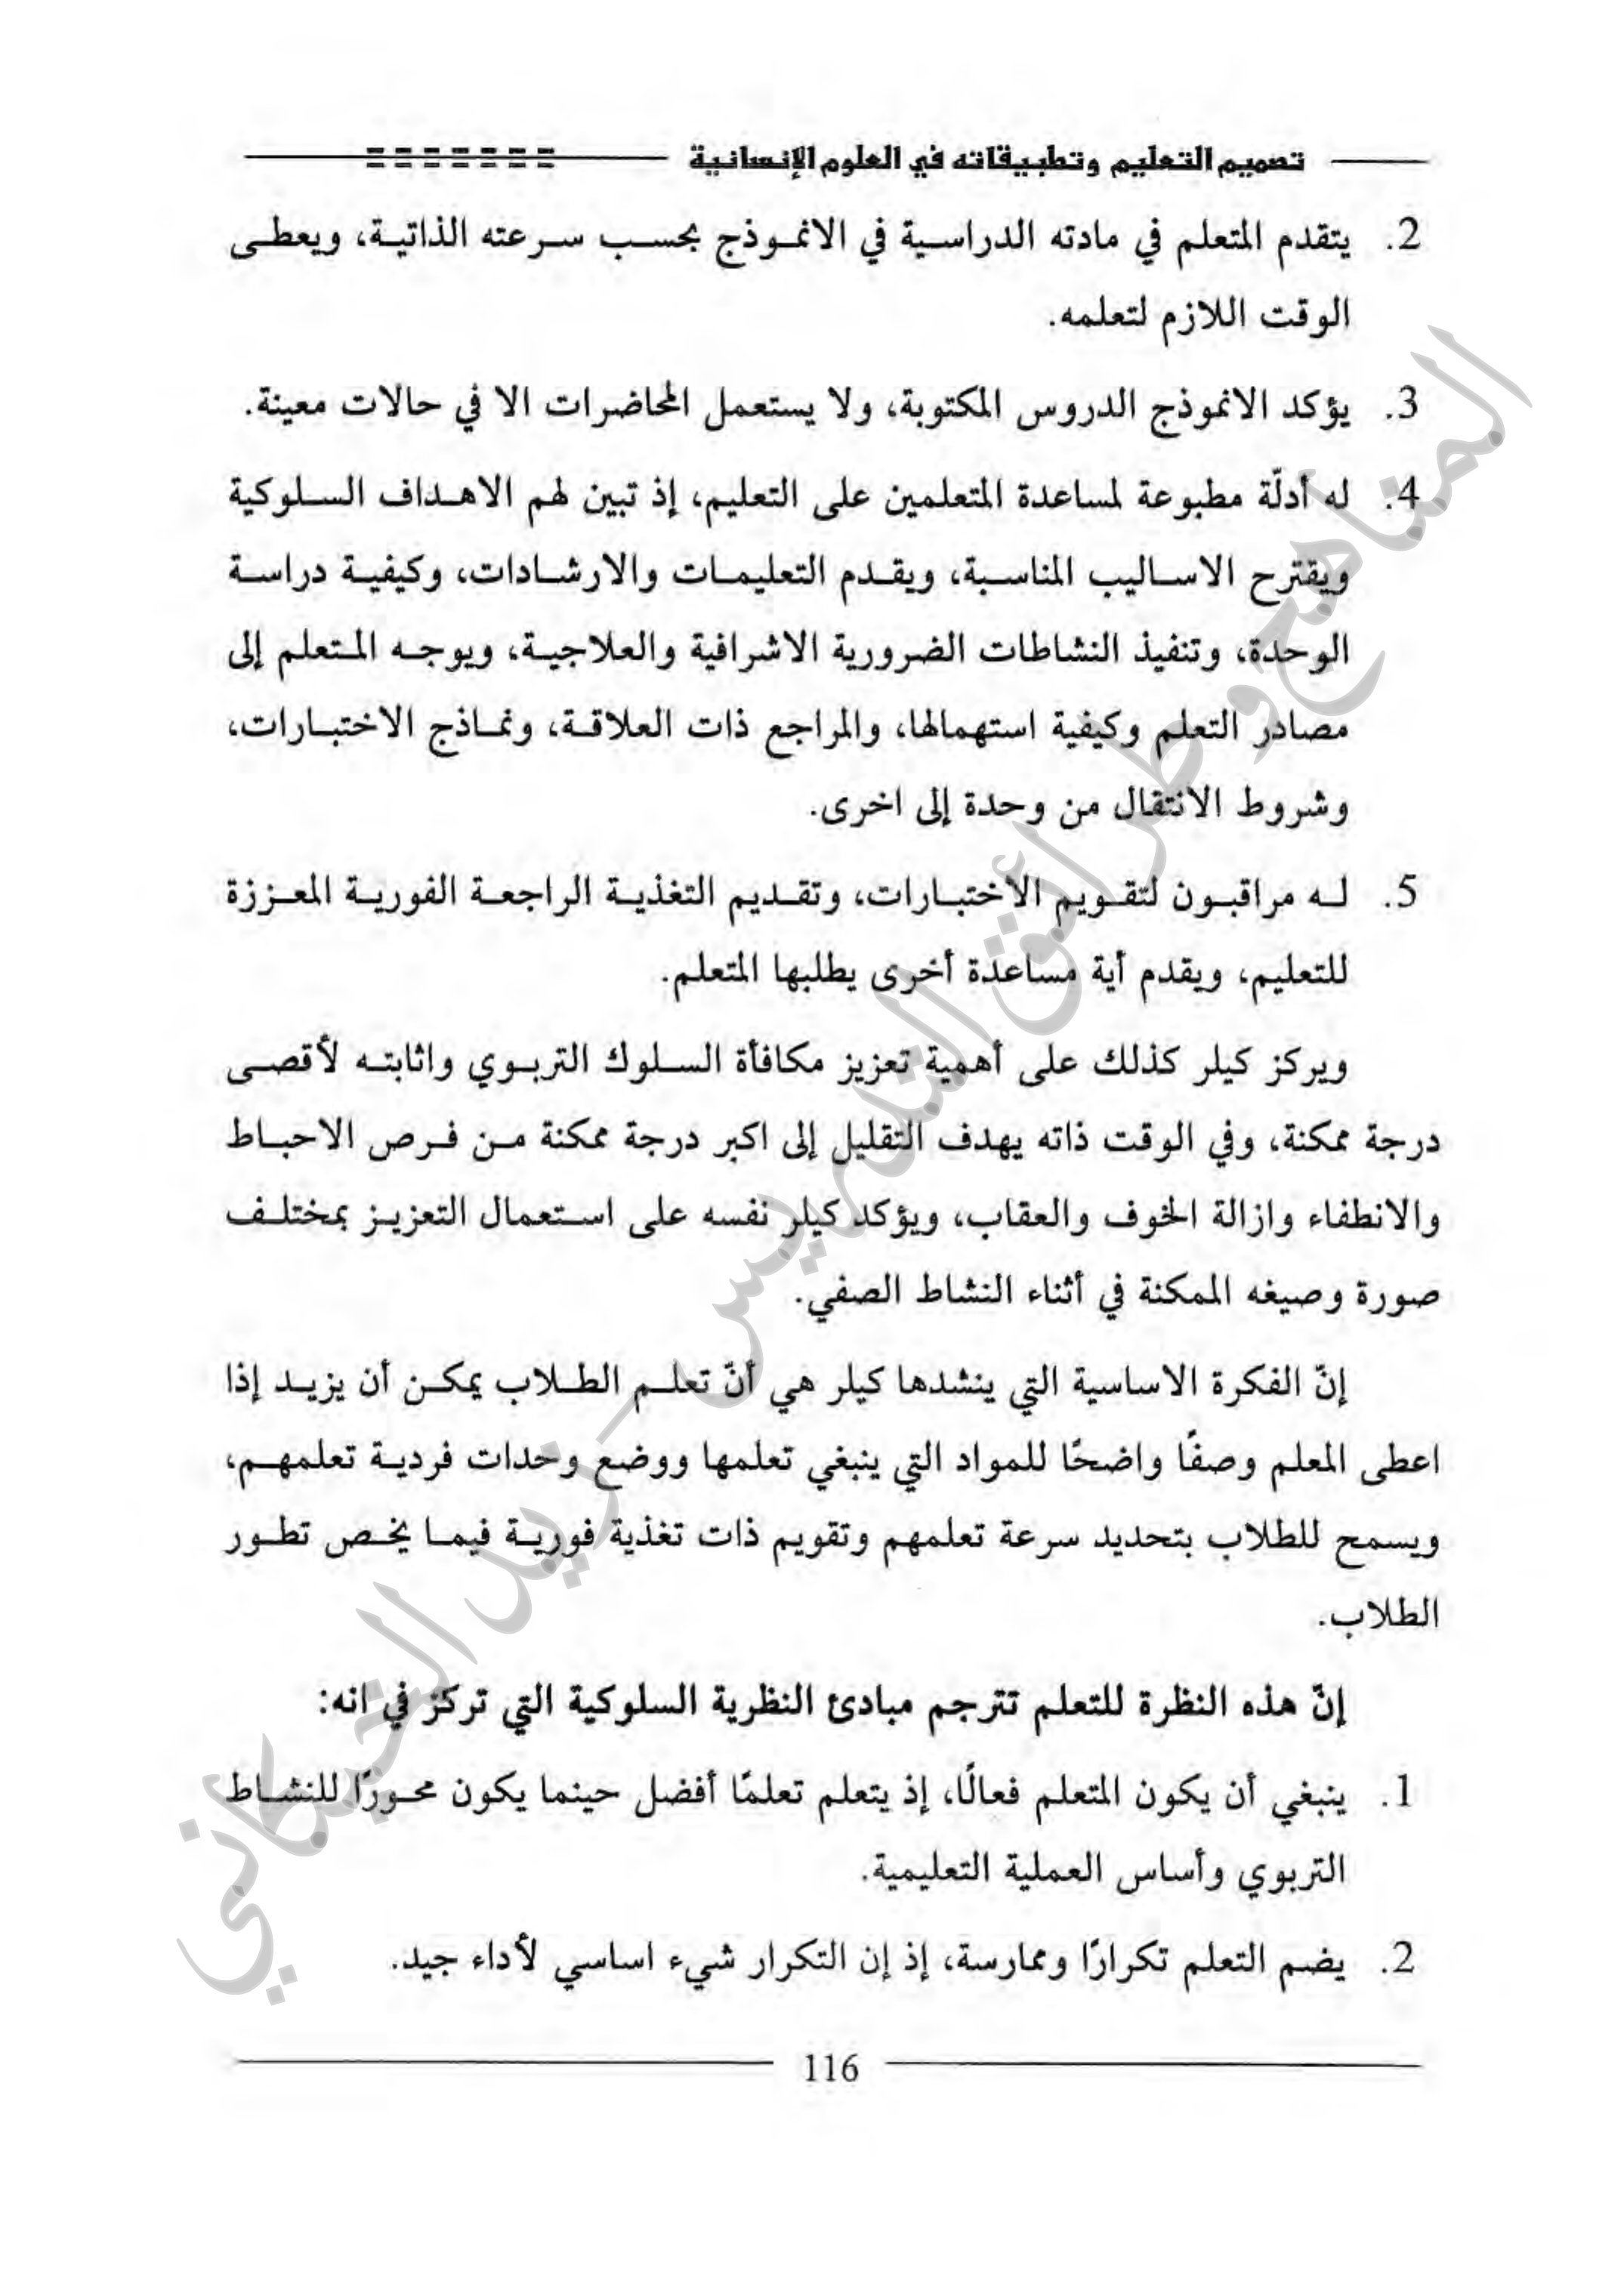 تصميم التعليم وتطبيقاته في العلوم الإنسانية
2. يتقدم المتعلم في مادته الدراسية في الانموذج بحسب سرعته الذاتية، ويعطى
الوقت اللازم لتعلمه.
3. يؤكد الانموذج الدروس المكتوبة، ولا يستعمل المحاضرات الا في حالات معينة.
4. له أدلّة مطبوعة لمساعدة المتعلمين على التعليم، إذ تبين لهم الاهداف السلوكية
ويقترح الاساليب المناسبة، ويقدم التعليمات والارشادات، وكيفية دراسة
الوحدة، وتنفيذ النشاطات الضرورية الاشرافية والعلاجية، ويوجه المتعلم إلى
مصادر التعلم وكيفية استهمالها، والمراجع ذات العلاقة، ونماذج الاختبارات،
وشروط الانتقال من وحدة إلى اخرى.
5. له مراقبون لتقويم الاختبارات، وتقديم التغذية الراجعة الفورية المعززة
للتعليم، ويقدم أية مساعدة أخرى يطلبها المتعلم.
ويركز كيلر كذلك على أهمية تعزيز مكافأة السلوك التربوي واثابته لأقصى
درجة ممكنة، وفي الوقت ذاته يهدف التقليل إلى اكبر درجة ممكنة من فرص الاحباط
والانطفاء وازالة الخوف والعقاب، ويؤكد كيلر نفسه على استعمال التعزيز بمختلف
صورة وصيغه الممكنة في أثناء النشاط الصفي.
إنّ الفكرة الاساسية التي ينشدها كيلر هي أنّ تعلم الطلاب يمكن أن يزيد إذا
اعطى المعلم وصفًا واضحًا للمواد التي ينبغي تعلمها ووضع وحدات فردية تعلمهم،
ويسمح للطلاب بتحديد سرعة تعلمهم وتقويم ذات تغذية فورية فيما يخص تطور
الطلاب.
إنّ هذه النظرة للتعلم تترجم مبادئ النظرية السلوكية التي تركز في انه:
1. ينبغي أن يكون المتعلم فعالًا، إذ يتعلم تعلمًا أفضل حينما يكون محورًا للنشاط
التربوي وأساس العملية التعليمية.
2. يضم التعلم تكرارًا وممارسة، إذ إن التكرار شيء اساسي لأداء جيد.
116
المناهج وطرائق التدريس - زيد الخيكاني